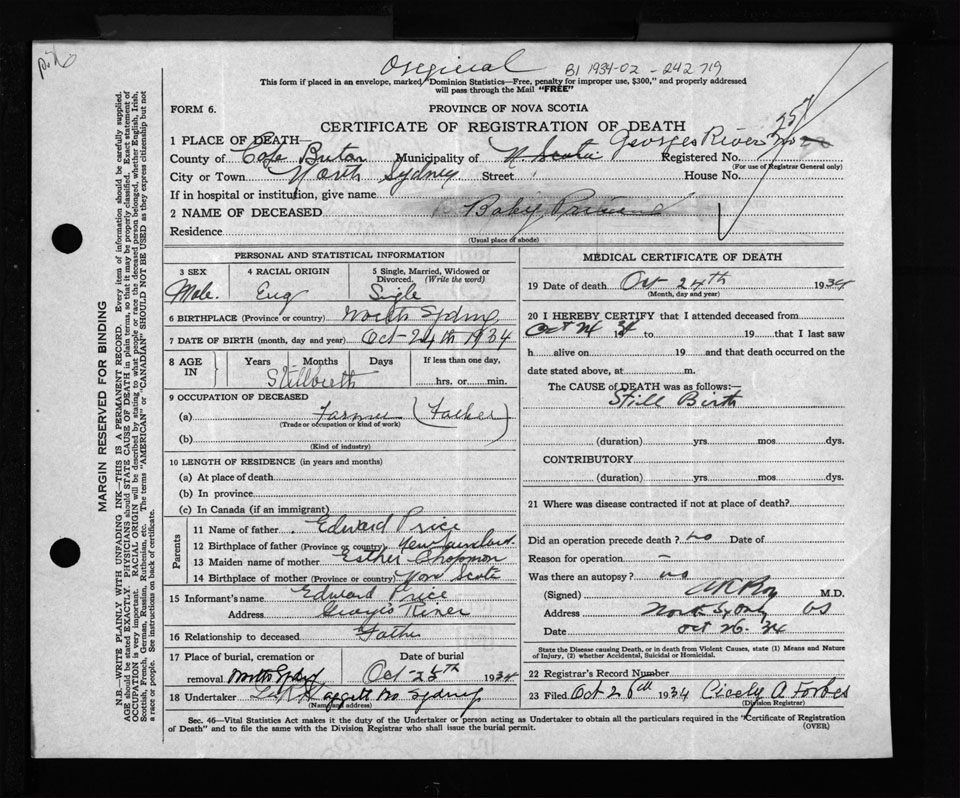 Original B1 1934-02 - 242719
This form if placed in an envelope, marked "Dominion Statistics—Free, penalty for improper use, $300," and properly addressed
will pass through the Mail "FREE"
FORM 6. PROVINCE OF NOVA SCOTIA
CERTIFICATE OF REGISTRATION OF DEATH
257
1 PLACE OF DEATH— Georges River
County of Cape Breton Municipality of N Scotia Registered No.
(For use of Registrar General only)
City or Town North Sydney Street House No.
If in hospital or institution, give name
2 NAME OF DECEASED Baby
Residence
(Usual place of abode)
PERSONAL AND STATISTICAL INFORMATION
3 SEX 4 RACIAL ORIGIN 5 Single, Married, Widowed or Divorced. (Write the word)
Male. Eng Single
6 BIRTHPLACE (Province or country) North Sydney
7 DATE OF BIRTH (month, day and year) Oct-24th 1934
8 AGE IN Years Months Days If less than one day,
Stillbirth hrs. or min.
9 OCCUPATION OF DECEASED
(a) Farmer (Father)
(Trade or occupation or kind of work)
(b)
(Kind of industry)
10 LENGTH OF RESIDENCE (in years and months)
(a) At place of death
(b) In province
(c) In Canada (if an immigrant)
Parents
11 Name of father Edward Price
12 Birthplace of father (Province or country) Newfoundland
13 Maiden name of mother Esther Chapman
14 Birthplace of mother (Province or country) Nova Scotia
15 Informant's name Edward Price
Address Georges River
16 Relationship to deceased Father
17 Place of burial, cremation or Date of burial
removal North Sydney Oct 25th 1934
18 Undertaker No Sydney
(Name and address)
MEDICAL CERTIFICATE OF DEATH
19 Date of death Oct 24th 1934
(Month, day and year)
20 I HEREBY CERTIFY that I attended deceased from
Oct 24 34 19 to 19 that I last saw
h alive on 19 and that death occurred on the
date stated above, at m.
The CAUSE of DEATH was as follows:—
Still Birth
(duration) yrs. mos. dys.
CONTRIBUTORY
(duration) yrs. mos. dys.
21 Where was disease contracted if not at place of death?
Did an operation precede death? no Date of
Reason for operation —
Was there an autopsy? no
(Signed) M.D.
Address North Sydney
Date Oct 26. 34
State the Disease causing Death, or in death from Violent Causes, state (1) Means and Nature
of Injury, (2) whether Accidental, Suicidal or Homicidal.
22 Registrar's Record Number
23 Filed Oct 26th 1934 Cicely A. Forbes
(Division Registrar)
Sec. 46—Vital Statistics Act makes it the duty of the Undertaker or person acting as Undertaker to obtain all the particulars required in the "Certificate of Registration
of Death" and to file the same with the Division Registrar who shall issue the burial permit. (OVER)
MARGIN RESERVED FOR BINDING
N.B.—WRITE PLAINLY WITH UNFADING INK—THIS IS A PERMANENT RECORD. Every item of information should be carefully supplied.
AGE should be stated EXACTLY. PHYSICIANS should STATE CAUSE OF DEATH in plain terms, so that it may be properly classified. Exact statement of
OCCUPATION is very important. RACIAL ORIGIN will be described by stating to what people or race the deceased person belonged, whether English, Irish,
Scottish, French, German, Russian, Ruthenian, etc. The terms "AMERICAN" or "CANADIAN" SHOULD NOT BE USED as they express citizenship but not
a race or people. See instructions on back of certificate.